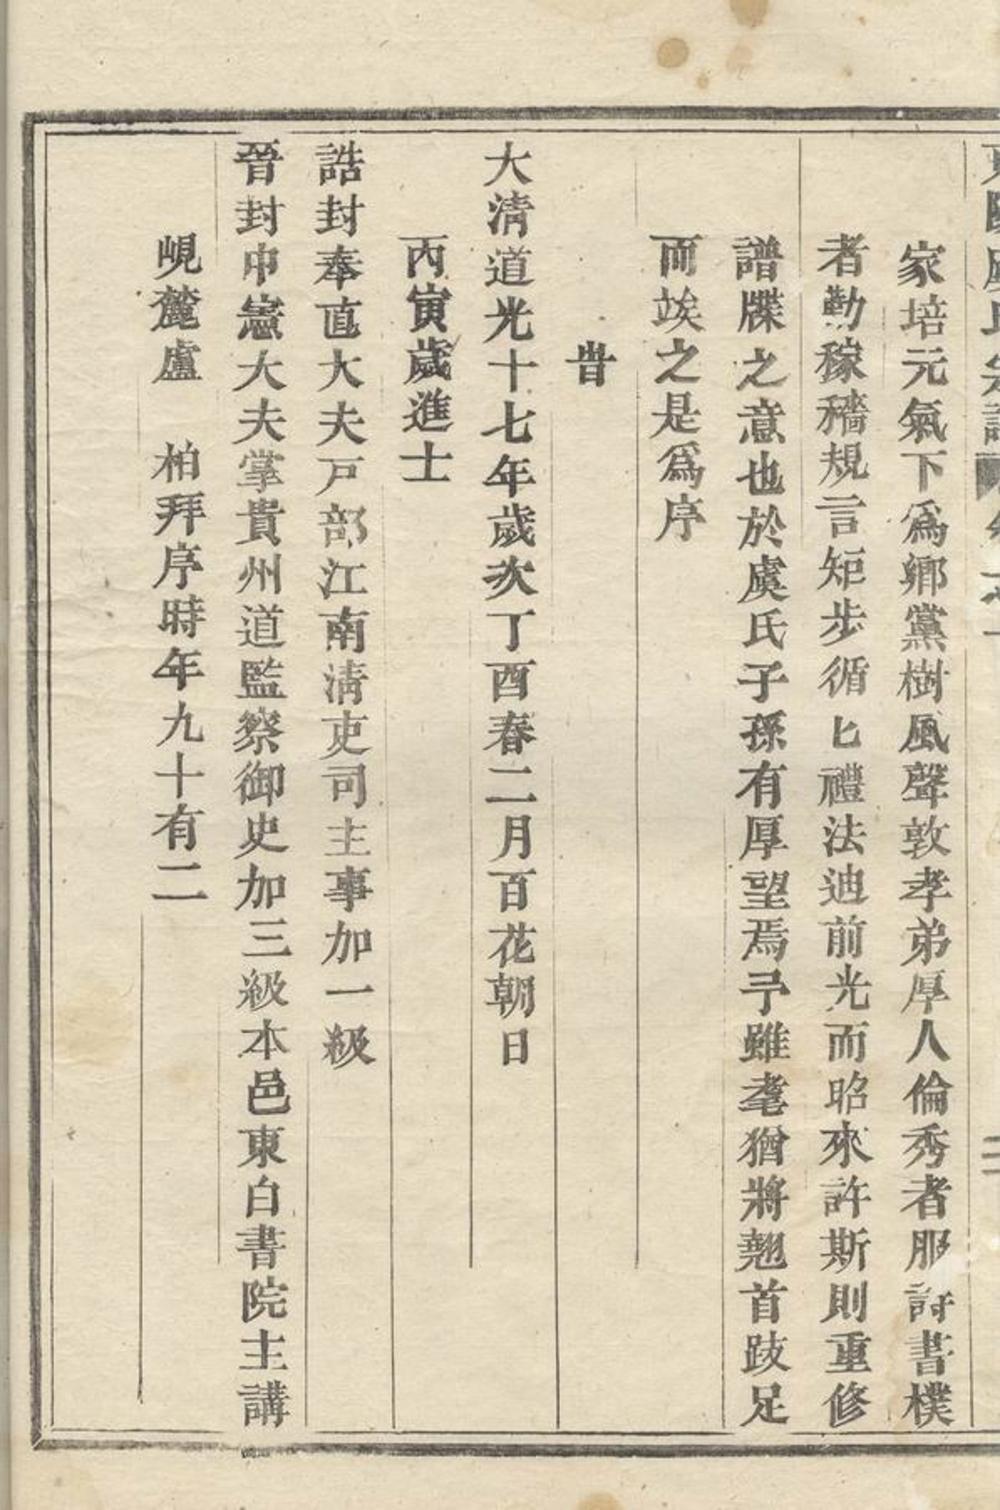 家培元氣下爲鄉黨樹風聲敦孝弟厚人倫秀者服詩書樸
者勤稼穡規言矩步循匕禮法迪前光而昭來許斯則重修
譜牒之意也於虞氏子孫有厚望焉予雖耄猶將翹首跂足
而竢之是爲序
旹
大清道光十七年歲次丁酉春二月百花朝日
丙寅歲進士
誥封奉直大夫戸部江南清吏司主事加一級
晉封中憲大夫掌貴州道監察御史加三級本邑東白書院主講
峴麓盧 柏拜序時年九十有二